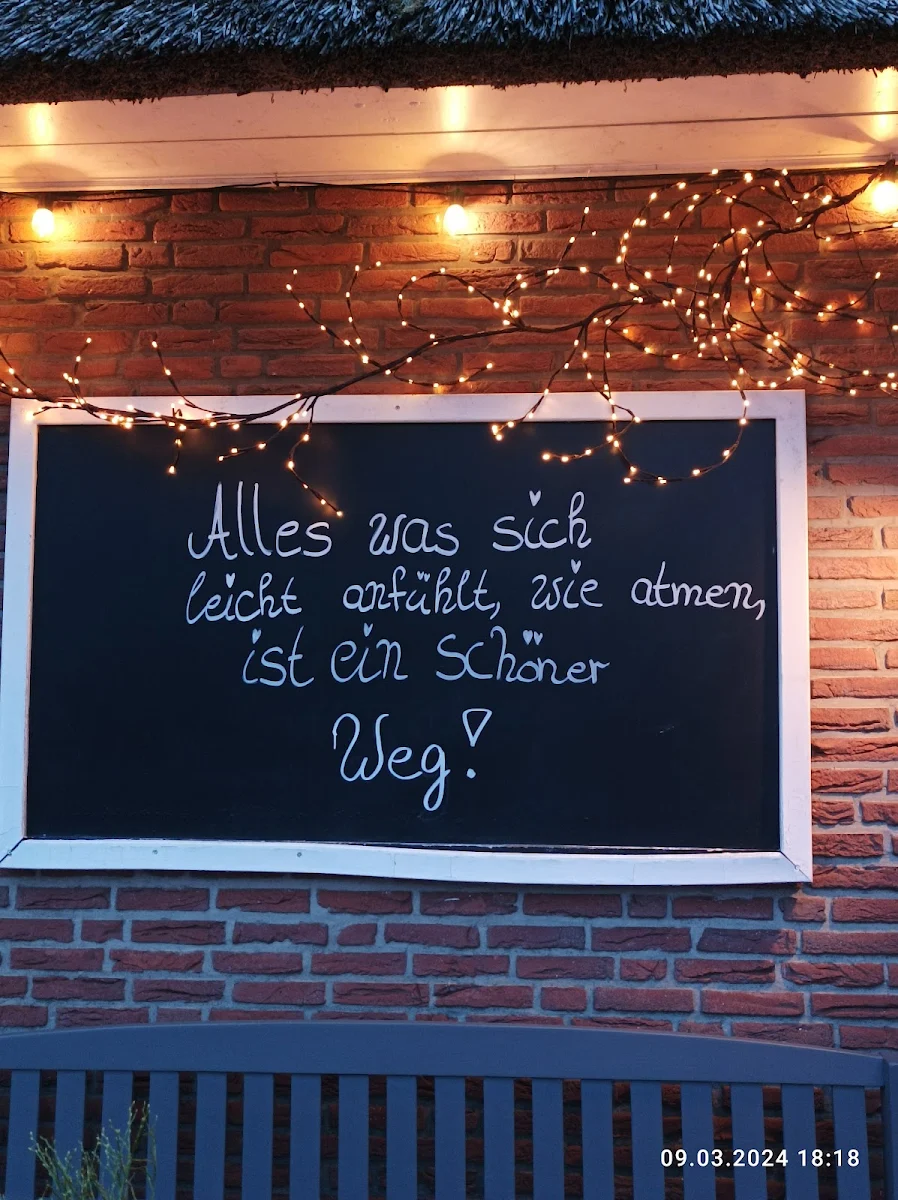 Alles was sich
leicht anfühlt, wie atmen,
ist ein schöner
Weg!
09.03.2024 18:18